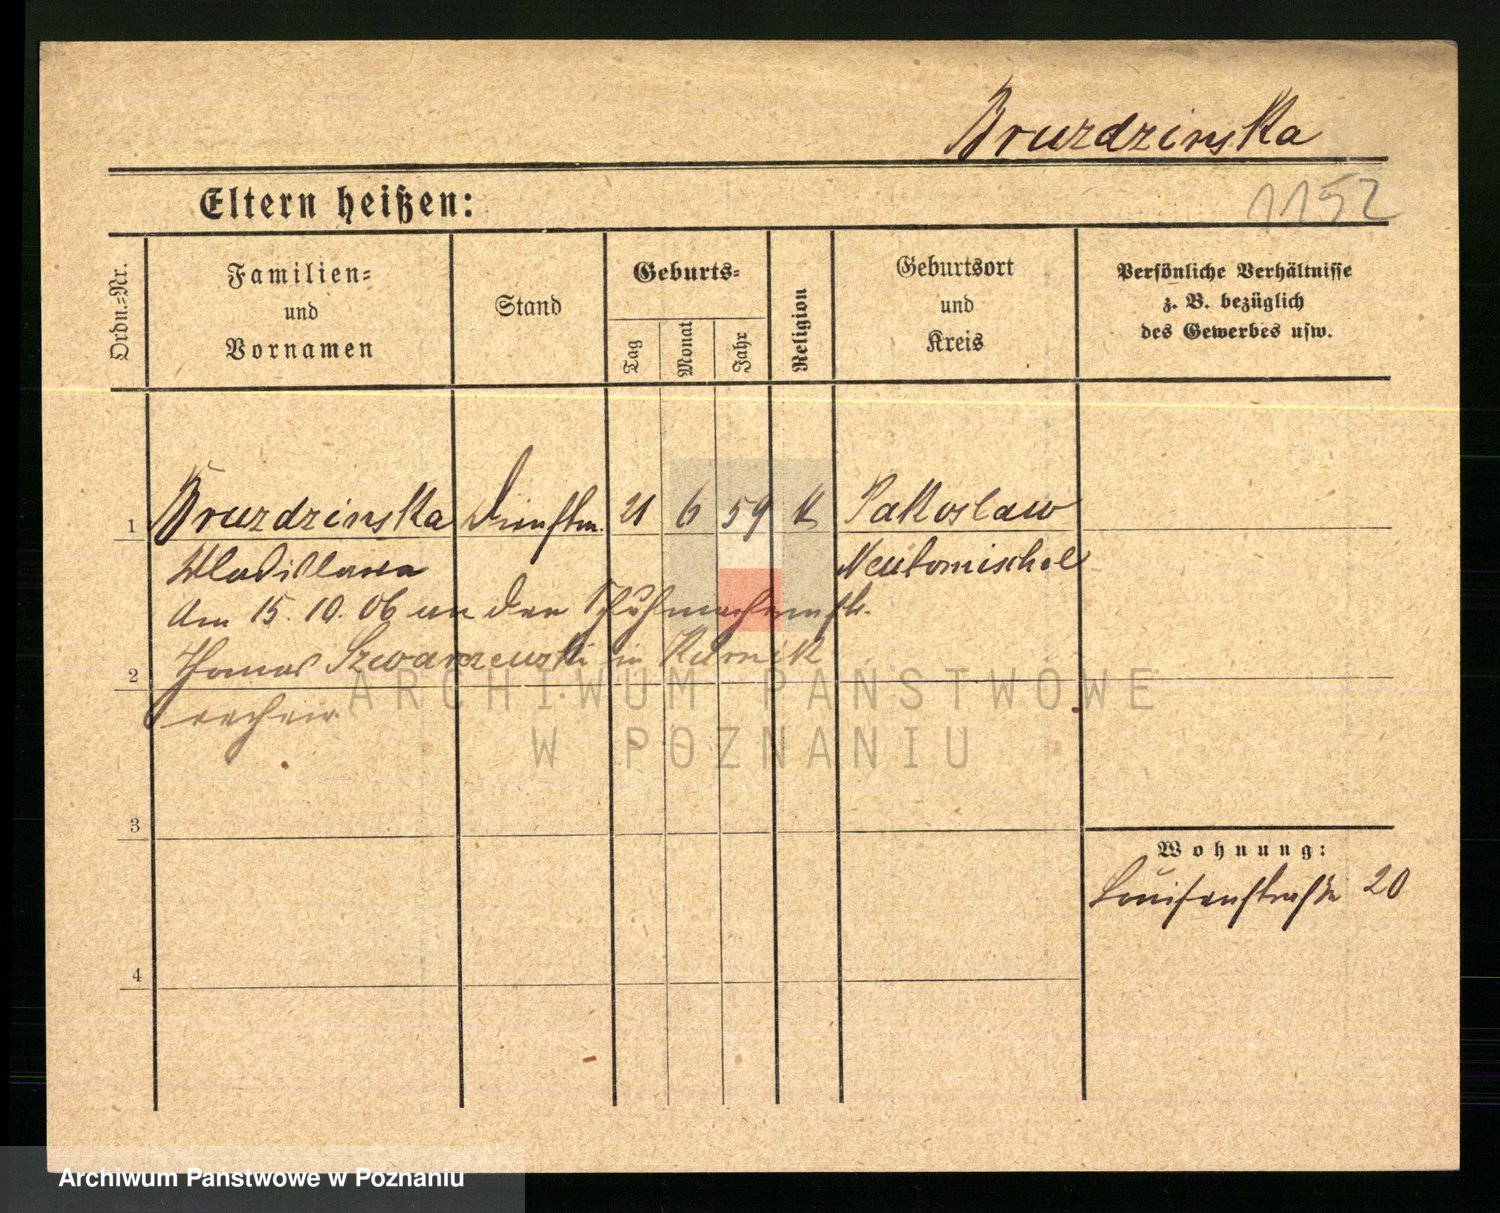 Bruzdzinska
Eltern heißen:
1152
Ordn.-Nr.
Familien-
und
Vornamen
Stand
Geburts-
Tag
Monat
Jahr
Religion
Geburtsort
und
Kreis
Persönliche Verhältnisse
z. B. bezüglich
des Gewerbes usw.
1 Bruzdzinska Dienstm. 21 6 59 K Pakoslaw
Wladislawa Neutomischel
Am 15. 10. 06 an den
Thomas Szwarzewski in Kurnik
2
3
Wohnung:
Louisenstraße 20
4
ARCHIWUM PAŃSTWOWE
W POZNANIU
Archiwum Państwowe w Poznaniu